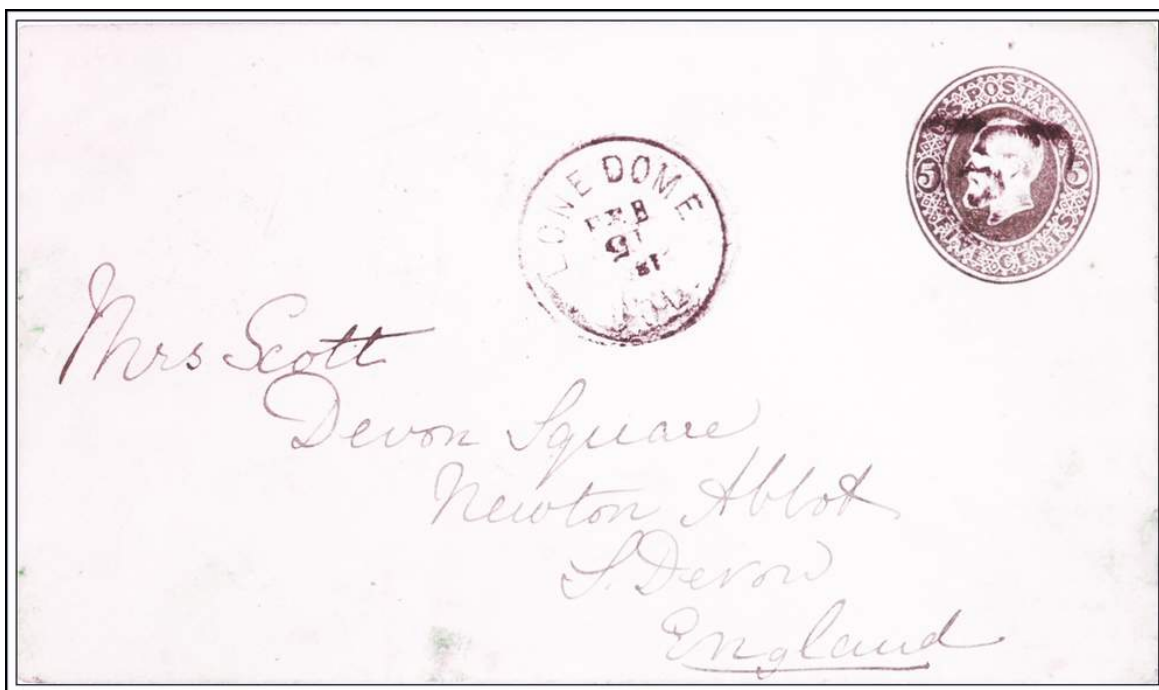 U.S. POSTAGE
5 5
FIVE CENTS
LONE DOME
FEB
5
81
Mrs Scott
Devon Square
Newton Abbot
S. Devon
England